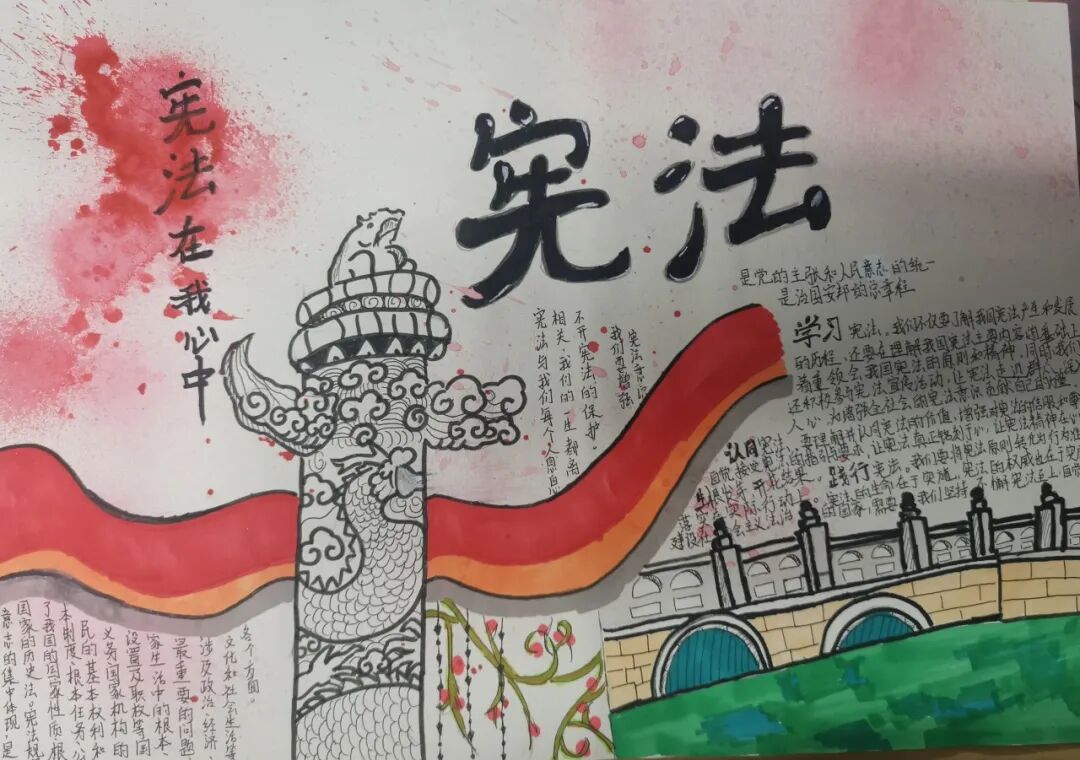 宪法在我心中
宪法
是党的主张和人民意志的统一
是治国安邦的总章程
学习 宪法，我们不仅要了解我国宪法产生和发展
的历程，还要在理解我国宪法主要内容的基础上
着重领会我国宪法的原则和精神，同时我们
还积极参与宪法宣传活动，让宪法走近群众、走入
人心，为增强全社会的宪法意识贡献自己的
认同宪法，要理解并认同宪法的价值，增强对宪法的信服和
践行宪法。我们要将宪法原则转化为行为
宪法的生命在于实施，宪法的权威也在于实施
我们坚持不懈
建设社会主义法治的国家，需要
宪法意识
我们要增强
不开宪法的保护。
相关，我们的一生都离
宪法与我们每个人息息
各个方面。
文化和社会生活等
涉及政治、经济、
最重要的问题
家生活中的根本、
设置及职权等国
义务、国家机构的
民的基本权利和
本制度、根本任务、公
了我国的国家性质、根
国家的历史法。宪法规
意志的集中体现，是